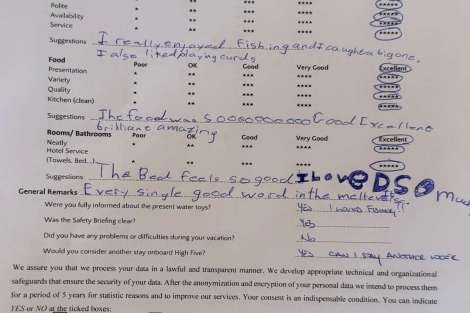 Polite * ** *** **** *****
Availability * ** *** **** *****
Service * ** *** **** *****
Suggestions I really enjoyed fishing and I caught a big one,
I also liked playing cards
Food Poor OK Good Very Good Excellent
Presentation * ** *** **** *****
Variety * ** *** **** *****
Quality * ** *** **** *****
Kitchen (clean) * ** *** **** *****
Suggestions The food was Soooooooooo Good Excellent
brilliant amazing
Rooms/ Bathrooms Poor OK Good Very Good Excellent
Neatly * ** *** **** *****
Hotel Service
(Towels, Bed...) * ** *** **** *****
Suggestions The Bed feels so good I love
General Remarks Every single good word in the
Were you fully informed about the present water toys? Yes I loved Fishing!
Was the Safety Briefing clear? Yes
Did you have any problems or difficulties during your vacation? No
Would you consider another stay onboard High Five? Yes can I stay another
We assure you that we process your data in a lawful and transparent manner. We develop appropriate technical and organizational
safeguards that ensure the security of your data. After the anonymization and encryption of your personal data we intend to process them
for a period of 5 years for statistic reasons and to improve our services. Your consent is an indispensable condition. You can indicate
YES or NO at the ticked boxes: